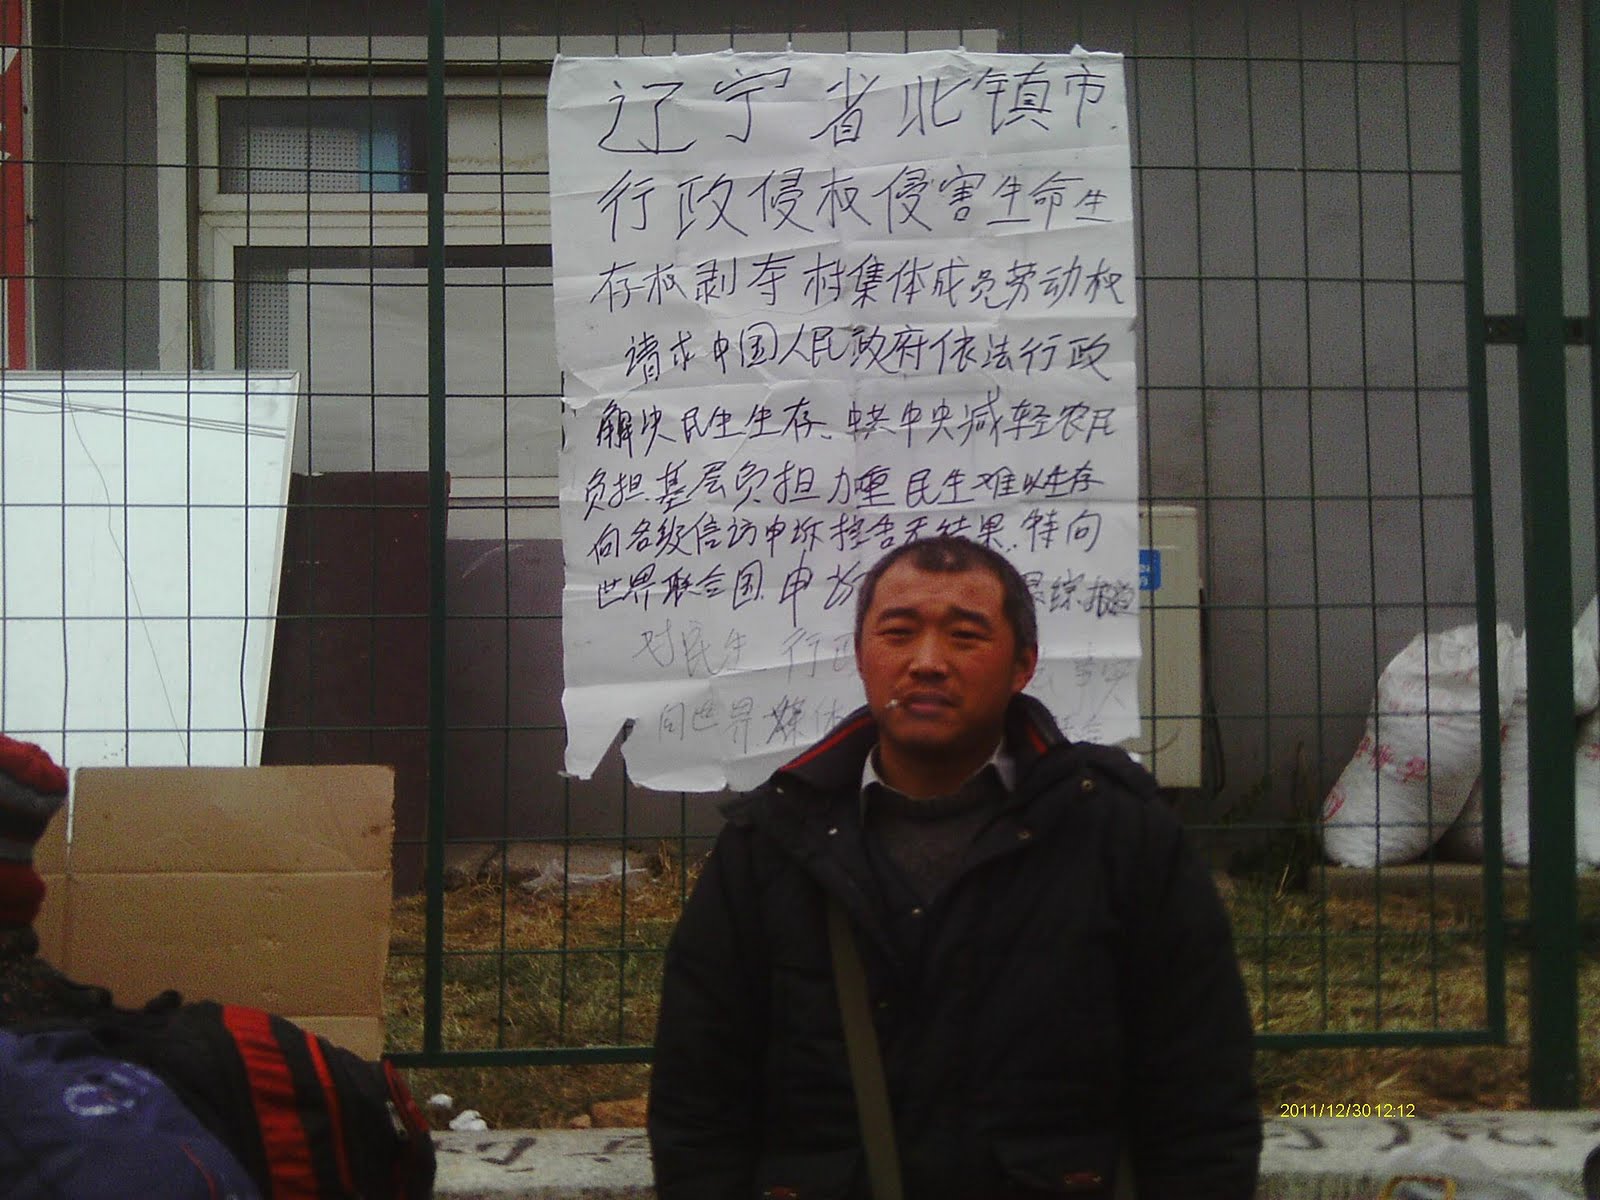 辽宁省北镇市
行政侵权侵害生命生
存权剥夺村集体成员劳动权
请求中国人民政府依法行政
解决民生生存、中共中央减轻农民
负担.基层负担力重民生难以生存
向各级信访申坼控告无结果.特向
世界联合国.申坼 踪.报道
对民生 行政 事实
向世界媒体
2011/12/30 12:12